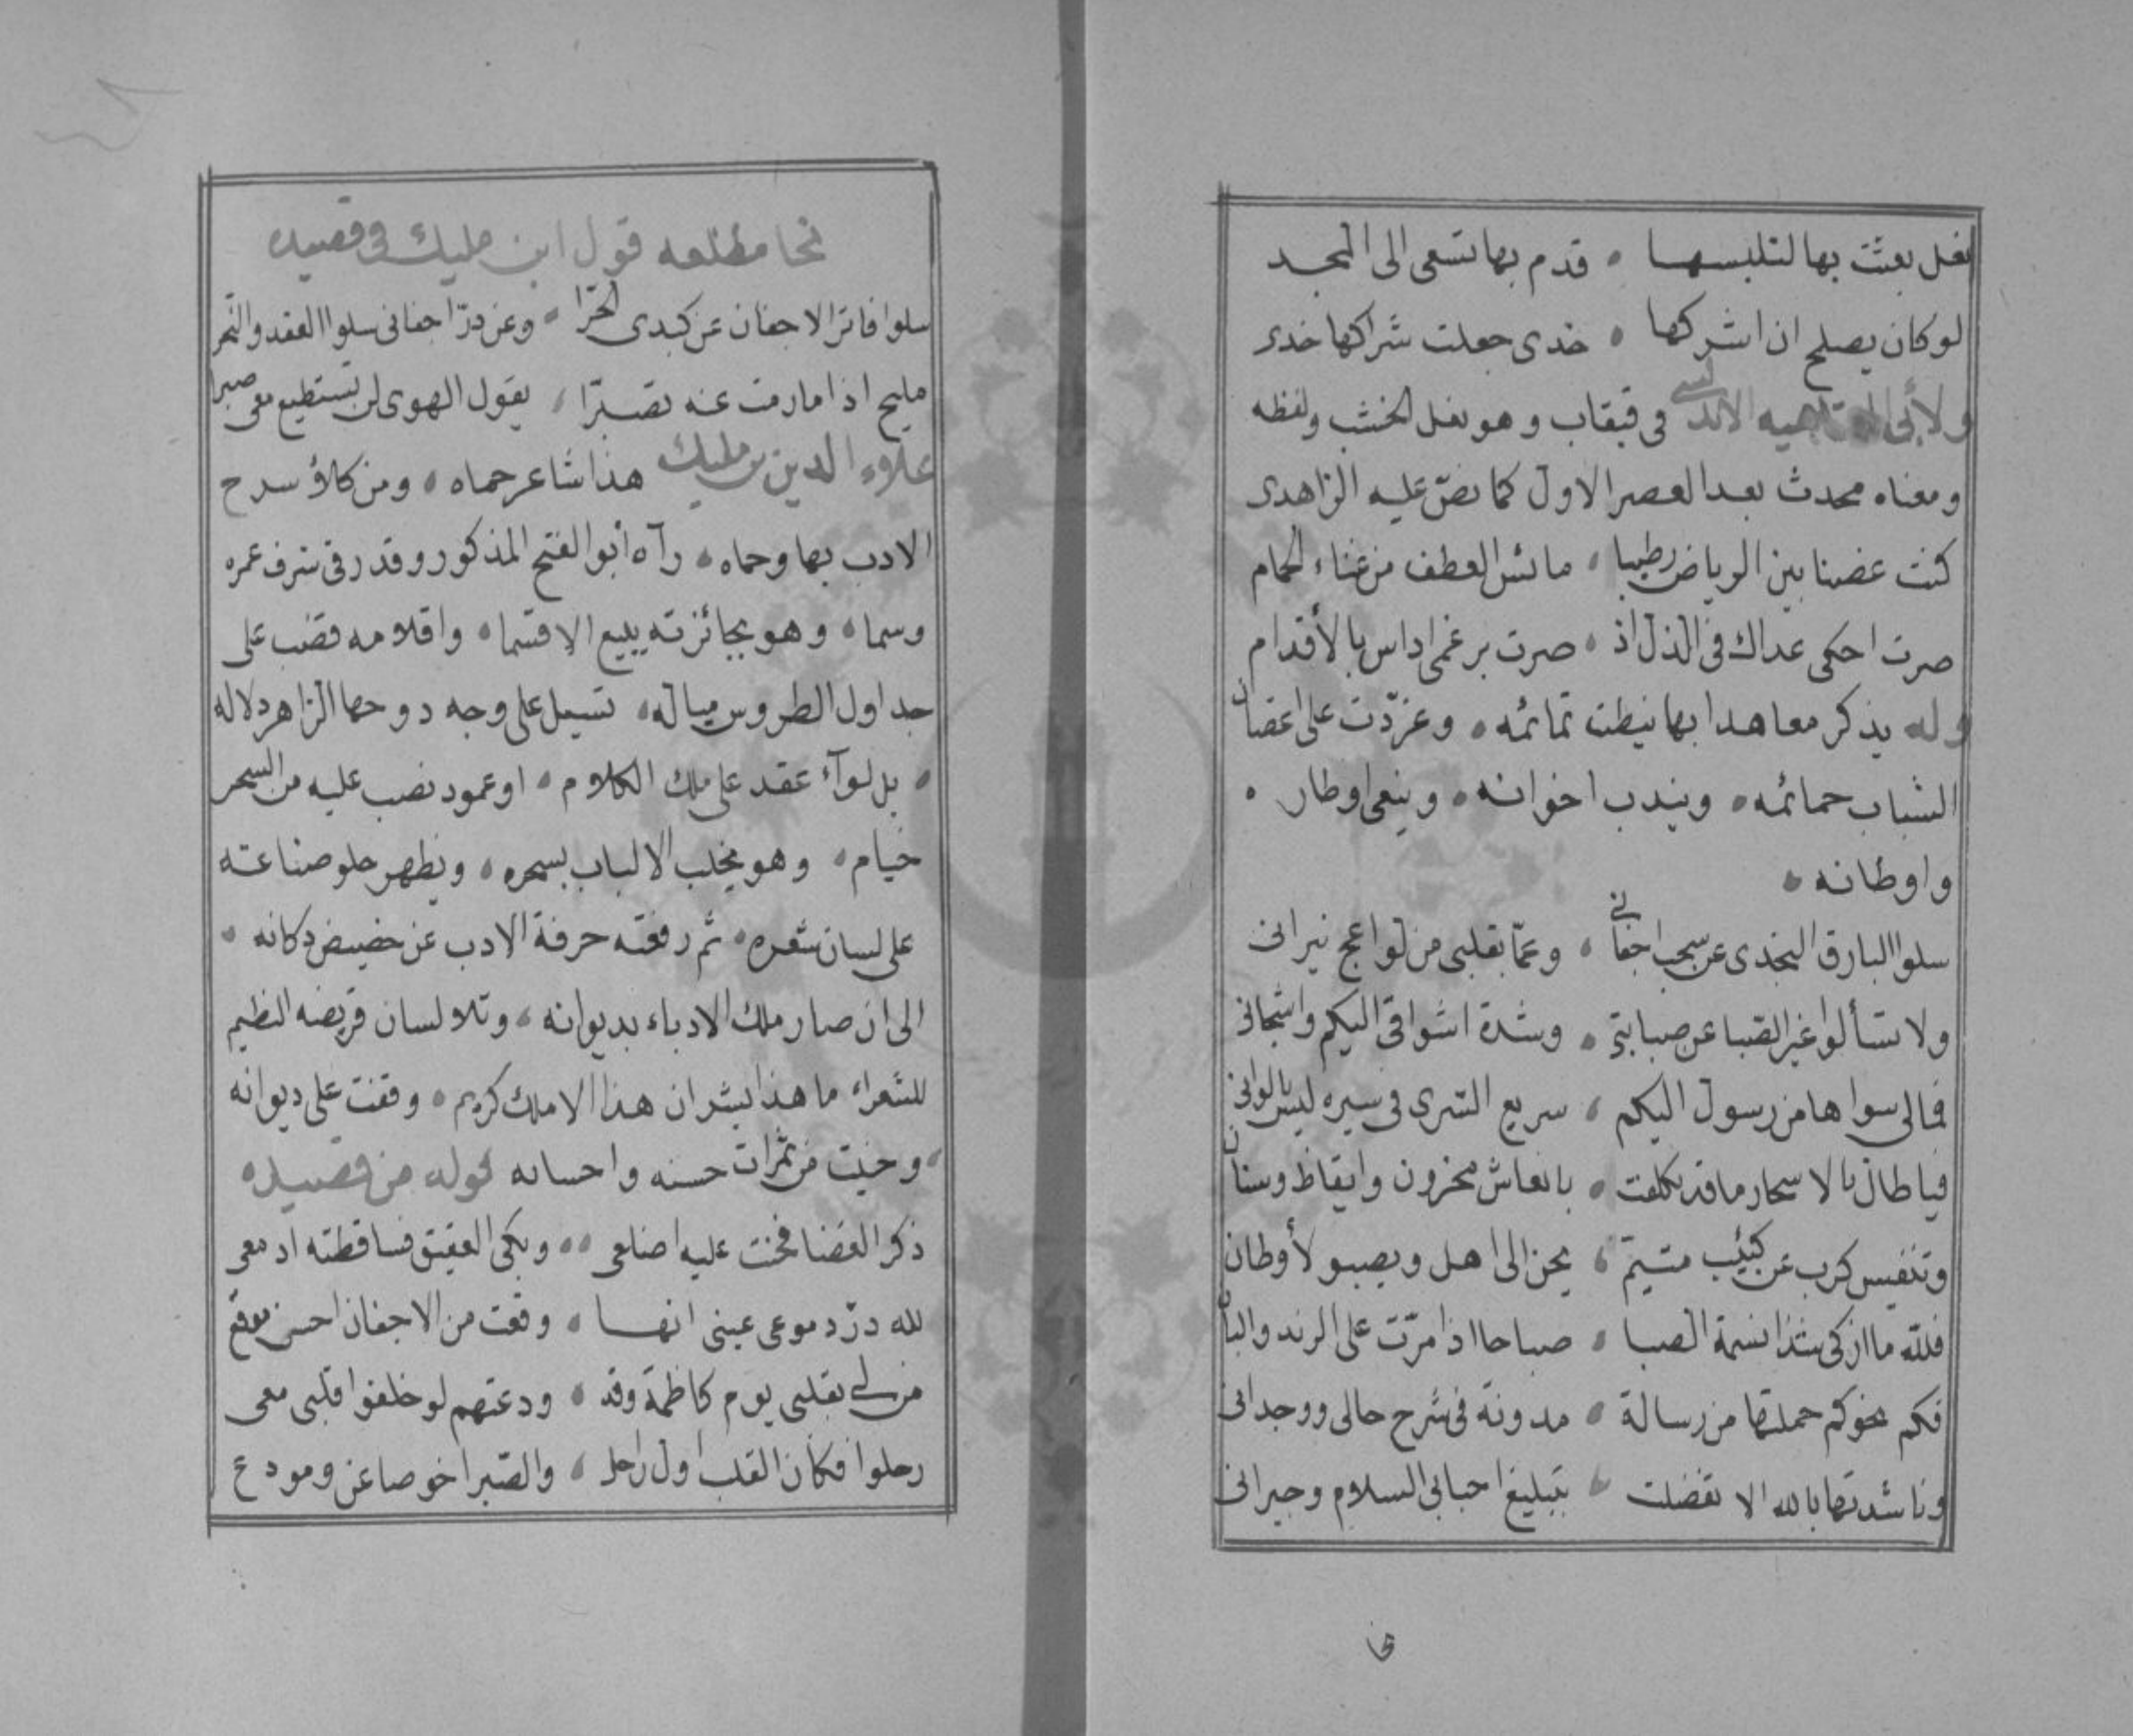 نعل بعثت بها لتلبسها ٠ قدم بها تسعى الى المجد
لو كان يصلح ان اشركها ٠ خدى جعلت شراكها خدى
ولأبى العتاهيه الاندلسى فى قبقاب وهو نعل الخشب ولفظه
ومعناه محدث بعد العصر الاول كما نص عليه الزاهدى
كنت غصنا بين الرياض رطيبا ٠ مائس العطف من غناء الحمام
صرت احكى عداك فى الذل اذ ٠ صرت برغمى اداس بالأقدام
وله يذكر معاهدا بها نيطت تمائمه ٠ وغرّدت على اغصان
الشباب حمائمه ٠ ويندب اخوانه ٠ وينعى اوطار ٠
واوطانه ٠
سلوا البارق النجدى عن سحب اجفانى ٠ وعمّا بقلبى من لواعج نيرانى
ولا تسألوا غير الصبا عن صبابتى ٠ وشدة اشواقى اليكم واشجانى
فمالى سواها من رسول اليكم ٠ سريع السّرى فى سيره ليس بالوانى
فيا طال بالاسحار ما قد تكلفت ٠ بانعاش محزون وايقاظ وسنان
وتنفيس كرب عن كئيب متيّم ٠ يحن الى اهل ويصبو لأوطان
فللّه ما ازكى شذا نسمة الصبا ٠ صباحا اذا مرّت على الرند والبان
فكم نحوكم حملتها من رسالة ٠ مدونة فى شرح حالى ووجدانى
وناشدتها بالله الا تفضلت ٠ بتبليغ احبابى السلام وجيرانى
نحا مطلعه قول ابن مليك فى قصيده
سلوا فاتر الاجفان عن كبدى الحرّا ٠ وعن درّ اجفانى سلوا العقد والنحر
مليح اذا ما رمت عنه تصبّرا ٠ يقول الهوى لن تستطيع معى صبرا
علاء الدين بن مليك هذا شاعر حماه ٠ ومن كلأ سرح
الادب بها وحماه ٠ رآه أبو الفتح المذكور وقد رقى شرف عمره
وسما ٠ وهو بجائزته يبيع الاقسما ٠ واقلامه قضب على
جداول الطروس مياله ٠ تسيل على وجه دوحها الزاهر دلاله
٠ بل لوآء عقد على ملك الكلام ٠ او عمود نصب عليه من السحر
خيام ٠ وهو يخلب الالباب بسحره ٠ ويظهر حلو صناعته
على لسان شعره ٠ ثم رفعته حرفة الادب عن حضيض دكانه ٠
الى ان صار ملك الادباء بديوانه ٠ وتلا لسان قريضه النظيم
للشعراء ما هذا بشر ان هذا الا ملك كريم ٠ وقفت على ديوانه
٠ وجنيت من ثمرات حسنه واحسانه قوله من قصيده
ذكر الغضا فحنت عليه اضلعى ٠٠ وبكى العقيق فساقطته ادمعى
لله درّ دموعى عينى انها ٠ وقعت من الاجفان احسن موقع
من لى بقلبى يوم كاظمة وقد ٠ ودعتهم لو خلفوا قلبى معى
رحلوا فكان القلب اول راحل ٠ والصبر اخو صاعن ومودع